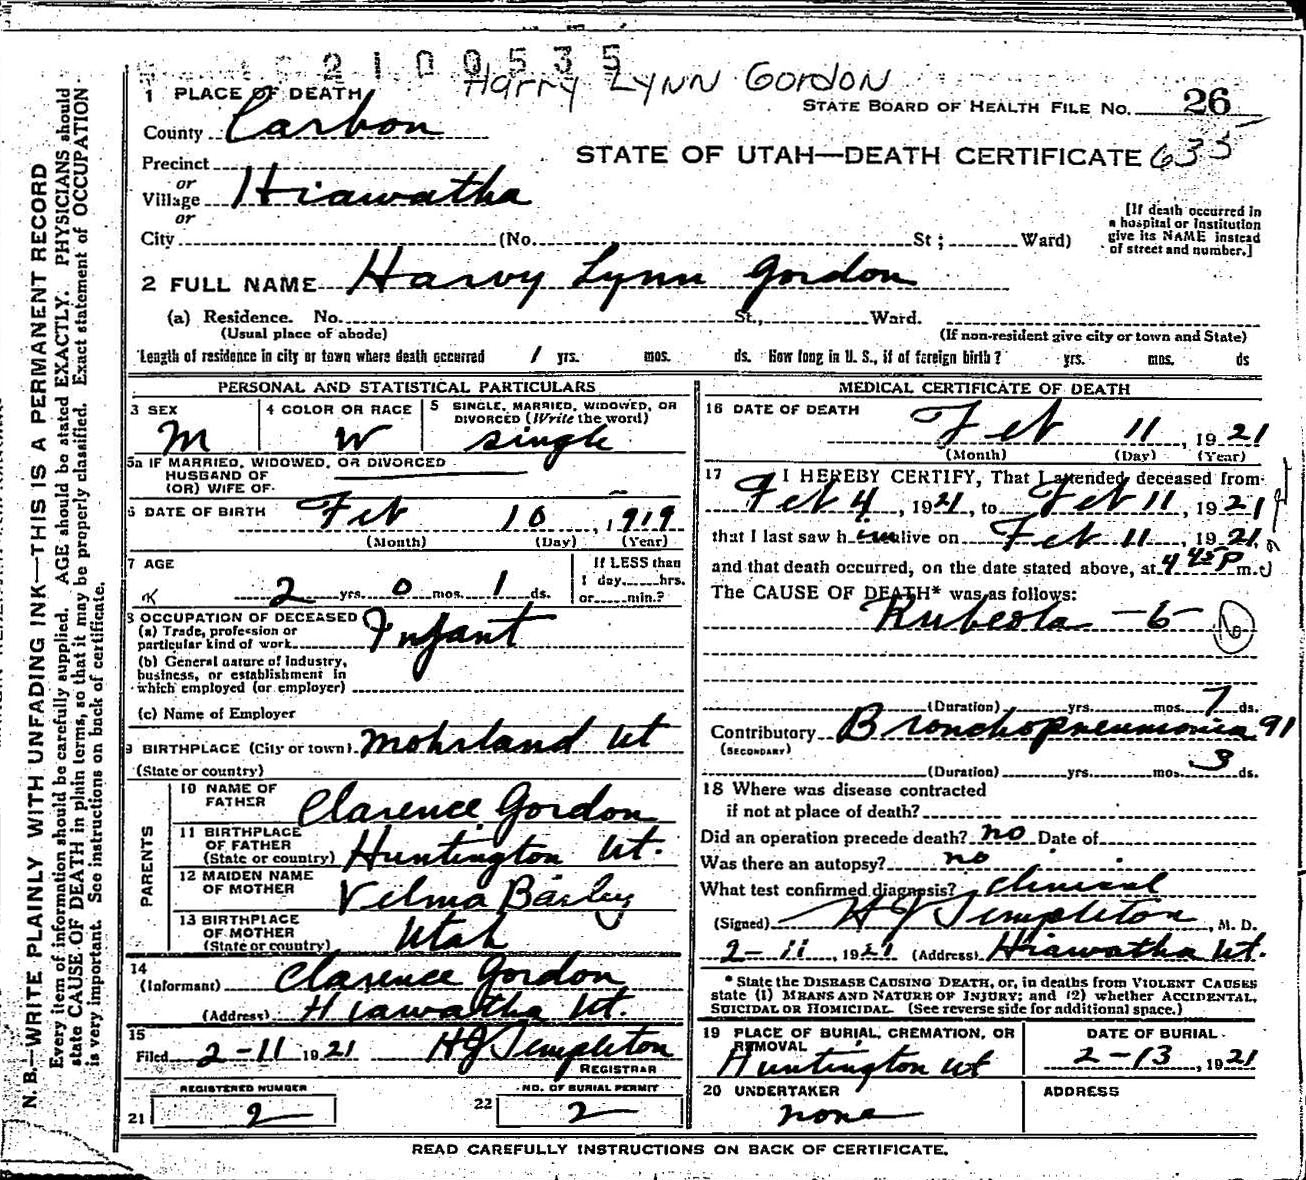 2100535
Harry Lynn Gordon
1 PLACE OF DEATH
STATE BOARD OF HEALTH FILE No. 26
County Carbon
STATE OF UTAH—DEATH CERTIFICATE 635
Precinct
or
Village Hiawatha
or
City (No. St; Ward)
[If death occurred in
a hospital or institution
give its NAME instead
of street and number.]
2 FULL NAME Harvy Lynn Gordon
(a) Residence. No. St., Ward.
(Usual place of abode) (If non-resident give city or town and State)
Length of residence in city or town where death occurred 1 yrs. mos. ds. How long in U. S., if of foreign birth? yrs. mos. ds
PERSONAL AND STATISTICAL PARTICULARS
3 SEX M
4 COLOR OR RACE W
5 SINGLE, MARRIED, WIDOWED, OR
DIVORCED (Write the word)
single
5a IF MARRIED, WIDOWED, OR DIVORCED
HUSBAND OF
(OR) WIFE OF
6 DATE OF BIRTH Feb 10, 1919
(Month) (Day) (Year)
7 AGE
2 yrs. 0 mos. 1 ds.
If LESS than
1 day, hrs.
or min.?
8 OCCUPATION OF DECEASED
(a) Trade, profession or
particular kind of work Infant
(b) General nature of industry,
business, or establishment in
which employed (or employer)
(c) Name of Employer
9 BIRTHPLACE (City or town) Mohrland Ut
(State or country)
PARENTS
10 NAME OF
FATHER Clarence Gordon
11 BIRTHPLACE
OF FATHER
(State or country) Huntington Ut.
12 MAIDEN NAME
OF MOTHER Velma
13 BIRTHPLACE
OF MOTHER
(State or country) Utah
14
(Informant) Clarence Gordon
(Address) Hiawatha Ut.
15
Filed 2-11 1921 HJ Templeton
REGISTRAR
REGISTERED NUMBER
21 2
NO. OF BURIAL PERMIT
22 2
MEDICAL CERTIFICATE OF DEATH
16 DATE OF DEATH
Feb 11, 1921
(Month) (Day) (Year)
17 I HEREBY CERTIFY, That I attended deceased from
Feb 4, 1921, to Feb 11, 1921
that I last saw him alive on Feb 11, 1921,
and that death occurred, on the date stated above, at 4 45 P m.
The CAUSE OF DEATH* was as follows:
Rubeola -6-
(Duration) yrs. mos. 7 ds.
Contributory Bronchopneumonia 91
(SECONDARY)
(Duration) yrs. mos. 3 ds.
18 Where was disease contracted
if not at place of death?
Did an operation precede death? no Date of
Was there an autopsy? no
What test confirmed diagnosis? clinical
(Signed) HJ Templeton, M. D.
2-11, 1921 (Address) Hiawatha Ut.
* State the DISEASE CAUSING DEATH, or, in deaths from VIOLENT CAUSES
state (1) MEANS AND NATURE OF INJURY; and (2) whether ACCIDENTAL,
SUICIDAL OR HOMICIDAL. (See reverse side for additional space.)
19 PLACE OF BURIAL, CREMATION, OR
REMOVAL
Huntington Ut
DATE OF BURIAL
2-13, 1921
20 UNDERTAKER
none
ADDRESS
READ CAREFULLY INSTRUCTIONS ON BACK OF CERTIFICATE.
N. B.—WRITE PLAINLY WITH UNFADING INK—THIS IS A PERMANENT RECORD
Every item of information should be carefully supplied. AGE should be stated EXACTLY. PHYSICIANS should
state CAUSE OF DEATH in plain terms, so that it may be properly classified. Exact statement of OCCUPATION
is very important. See instructions on back of certificate.